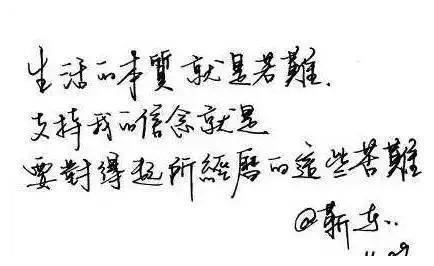 生活的本質就是苦難.
支持我的信念就是
要對得起所經曆的這些苦難
@靳东..